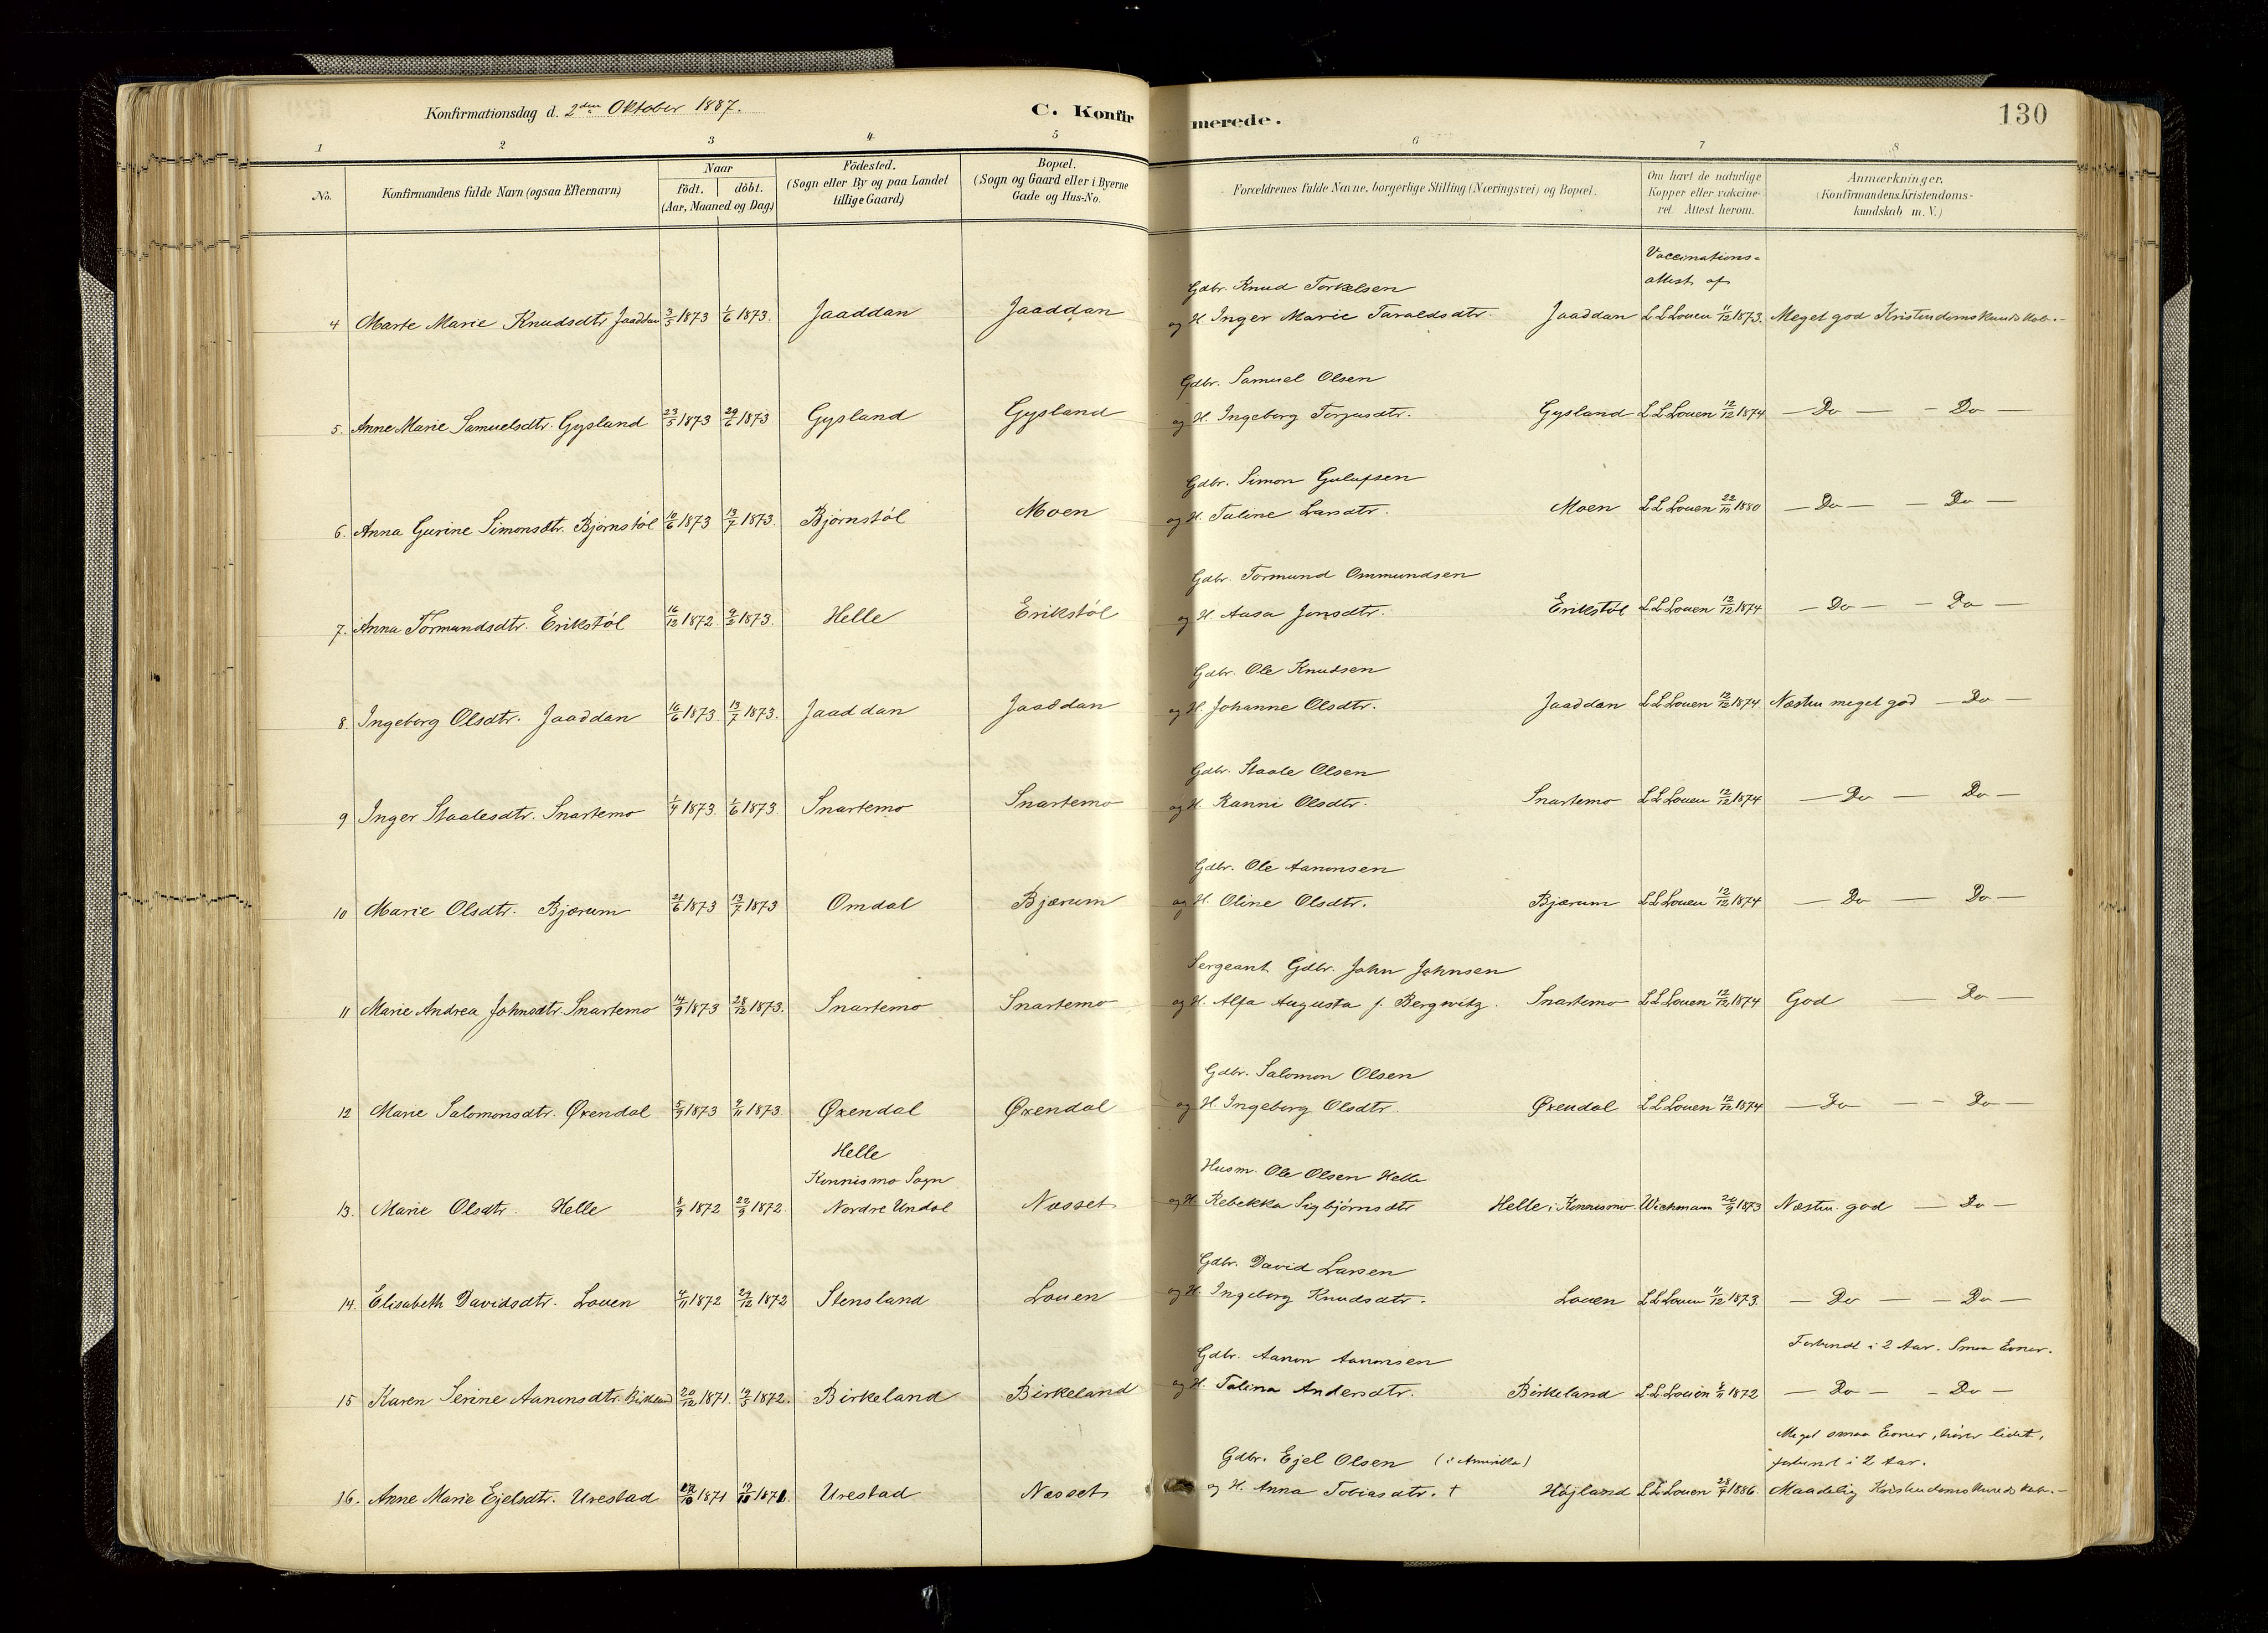 Konfirmationsdag d. 2den Oktober 1887.
C. Konfirmerede.
130
1 2 3 4 5 6 7 8
No.
Konfirmandens fulde Navn (ogsaa Efternavn)
Naar
födt. döbt.
(Aar, Maaned og Dag)
Födested.
(Sogn eller By og paa Landet
tillige Gaard)
Bopæl.
(Sogn og Gaard eller i Byerne
Gade og Hus-No.
Forældrenes fulde Navne, borgerlige Stilling (Næringsvei) og Bopæl.
Om havt de naturlige
Kopper eller vakcine-
ret. Attest herom.
Anmærkninger.
(Konfirmandens Kristendoms-
kundskab m. V.)
Vaccinations-
attest af
Gdbr. Knud Torkelsen
4 Marte Marie Knudsdtr Jaaddan 3/5 1873 1/6 1873. Jaaddan Jaaddan og H. Inger Marie Taraldsdtr. Jaaddan L L Louen 11/12 1873. Meget god Kristendomskundskab.-
Gdbr. Samuel Olsen
5. Anne Marie Samuelsdtr. Gysland 23/5 1873 29/6 1873 Gysland Gysland og H. Ingeborg Torjusdtr. Gysland L L Louen 12/12 1874 — Do — - Do —
Gdbr. Simon Gulufsen
6. Anna Gurine Simonsdtr. Bjørnstøl 10/6 1873 13/7 1873. Bjørnstøl Moen og H. Taline Larsdtr. Moen L L Louen 22/10 1880 — Do — - Do —
Gdbr. Tormund Ommundsen
7. Anna Tormundsdtr. Erikstøl 16/12 1872 9/2 1873. Helle Erikstøl og H. Aasa Jonsdtr. Erikstøl L L Louen 12/12 1874 — Do — - Do —
Gdbr. Ole Knudsen
8. Ingeborg Olsdtr. Jaaddan 16/6 1873. 13/7 1873. Jaaddan Jaaddan og H. Johanne Olsdtr. Jaaddan L L Louen 12/12 1874 Næsten meget god — Do —
Gdbr. Staale Olsen
9 Inger Staalesdtr. Snartemo 1/4 1873. 1/6 1873. Snartemo Snartemo og H. Ranni Olsdtr. Snartemo L L Louen 12/12 1874 — Do — Do —
Gdbr. Ole Aanonsen
10 Marie Olsdtr. Bjærum 21/6 1873 13/7 1873 Omdal Bjærum og H. Oline Olsdtr. Bjærum L L Louen 12/12 1874 — Do — Do —
Sergeant Gdbr. John Johnsen
11 Marie Andrea Johnsdtr. Snartemo 14/9 1873 28/12 1873. Snartemo Snartemo og H. Alfa Augusta f. Bergwitz. Snartemo L L Louen 12/12 1874 God — Do —
Gdbr. Salomon Olsen
12 Marie Salomonsdtr. Øxendal 5/9 1873 9/11 1873. Øxendal Øxendal og H. Ingeborg Olsdtr. Øxendal L L Louen 12/12 1874 — Do — - Do —
Helle
Konnismo Sogn
Husm. Ole Olsen Helle
13. Marie Olsdtr. Helle 8/9 1872 22/9 1872. Nordre Undal Næsset og H. Rebekka Sigbjørnsdtr Helle i Konnismo. Wichmann 20/9 1873 Næsten god — Do —
Gdbr. David Larsen
14. Elisabeth Davidsdtr. Louen 4/11 1872 29/12 1872 Stensland Louen og H. Ingeborg Knudsdtr. Louen L L Louen 11/12 1873. — Do — - Do —
Forhendt i 2 Aar. Smaa Evner.
Gdbr. Aanon Aanonsen
15 Karen Serine Aanonsdtr. Birkeland 20/12 1871. 19/3 1872. Birkeland Birkeland og H. Talina Andersdtr. Birkeland L L Louen 1872 — Do — - Do —
Meget smaa Evner, hører lidet,
i 2 Aar.
Gdbr. Ejel Olsen (i Amerika)
16. Anne Marie Ejelsdtr. Urestad 1871 1871. Urestad Næsset og H. Anna Tobiasdtr. † Højland L L Louen 28/7 1886. Maadelig Kristendomskundskab.-